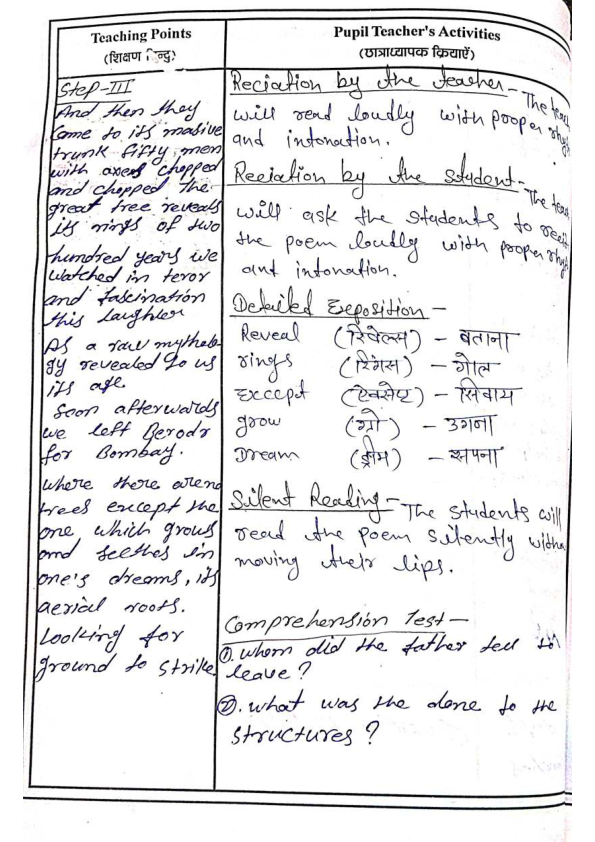 Teaching Points
(शिक्षण बिन्दु)
Step-III
And then they
Come to its masive
trunk fifty men
with axes chopped
and chopped the
great tree reveals
its rings of two
hundred years we
watched in teror
and fascination
this laughter
As a raw mytholo
gy revealed to us
its age.
Soon afterwards
we left Berodr
for Bombay.
where there arend
trees except the
one, which grows
and seethes in
one's dreams, its
aerial roots.
Looking for
ground to strike.
Pupil Teacher's Activities
(छात्राध्यापक क्रियाएँ)
Reciation by the teacher - The teac
will read loudly with proper rhy
and intonation.
Reciation by the student - The teac
will ask the students to recit
the poem loudly with proper rhy
ant intonation.
Detailed Exposition -
Reveal (रिवेल्स) - बताना
rings (रिंगस) - गोल
Except (ऐक्सेप्ट) - सिवाय
grow (ग्रो) - उगना
Dream (ड्रीम) - सपना
Silent Reading - The students will
read the poem silently witho
moving their lips.
Comprehension Test -
①. whom did the father tell to
leave?
②. what was the done to the
structures?